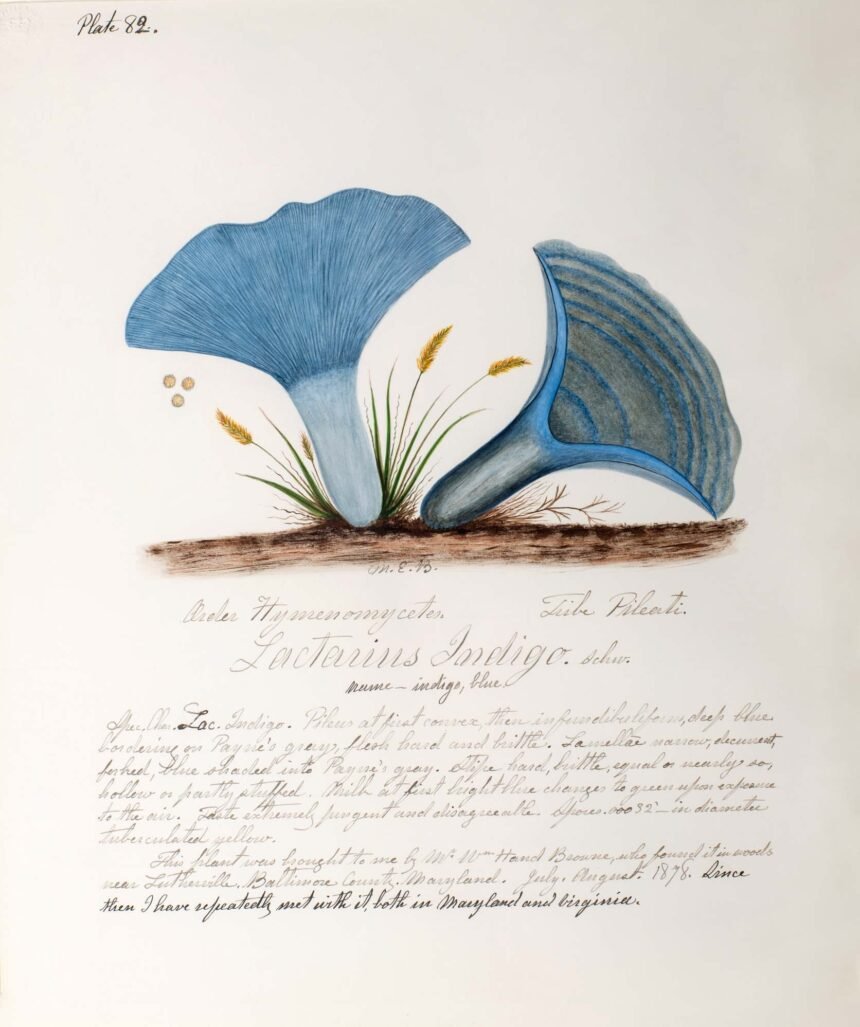 Plate 82.
M. E. B.
Order Hymenomycetes. Tribe Pileati.
Lactarius Indigo. Schw.
name – indigo, blue.
Spec. Char. Lac. Indigo. Pileus at first convex, then infundibuliform, deep blue
bordering on Payne's gray, flesh hard and brittle. Lamellae narrow, decurrent,
forked, blue shaded into Payne's gray. Stipe hard, brittle, equal or nearly so,
hollow or partly stuffed. Milk at first bright blue changes to green upon exposure
to the air. Taste extremely pungent and disagreeable. Spores .00032 – in diameter
tuberculated yellow.
This plant was brought to me by Mr Wm Hand Browne, who found it in woods
near Lutherville, Baltimore County, Maryland. July. August. 1878. Since
then I have repeatedly met with it, both in Maryland and Virginia.